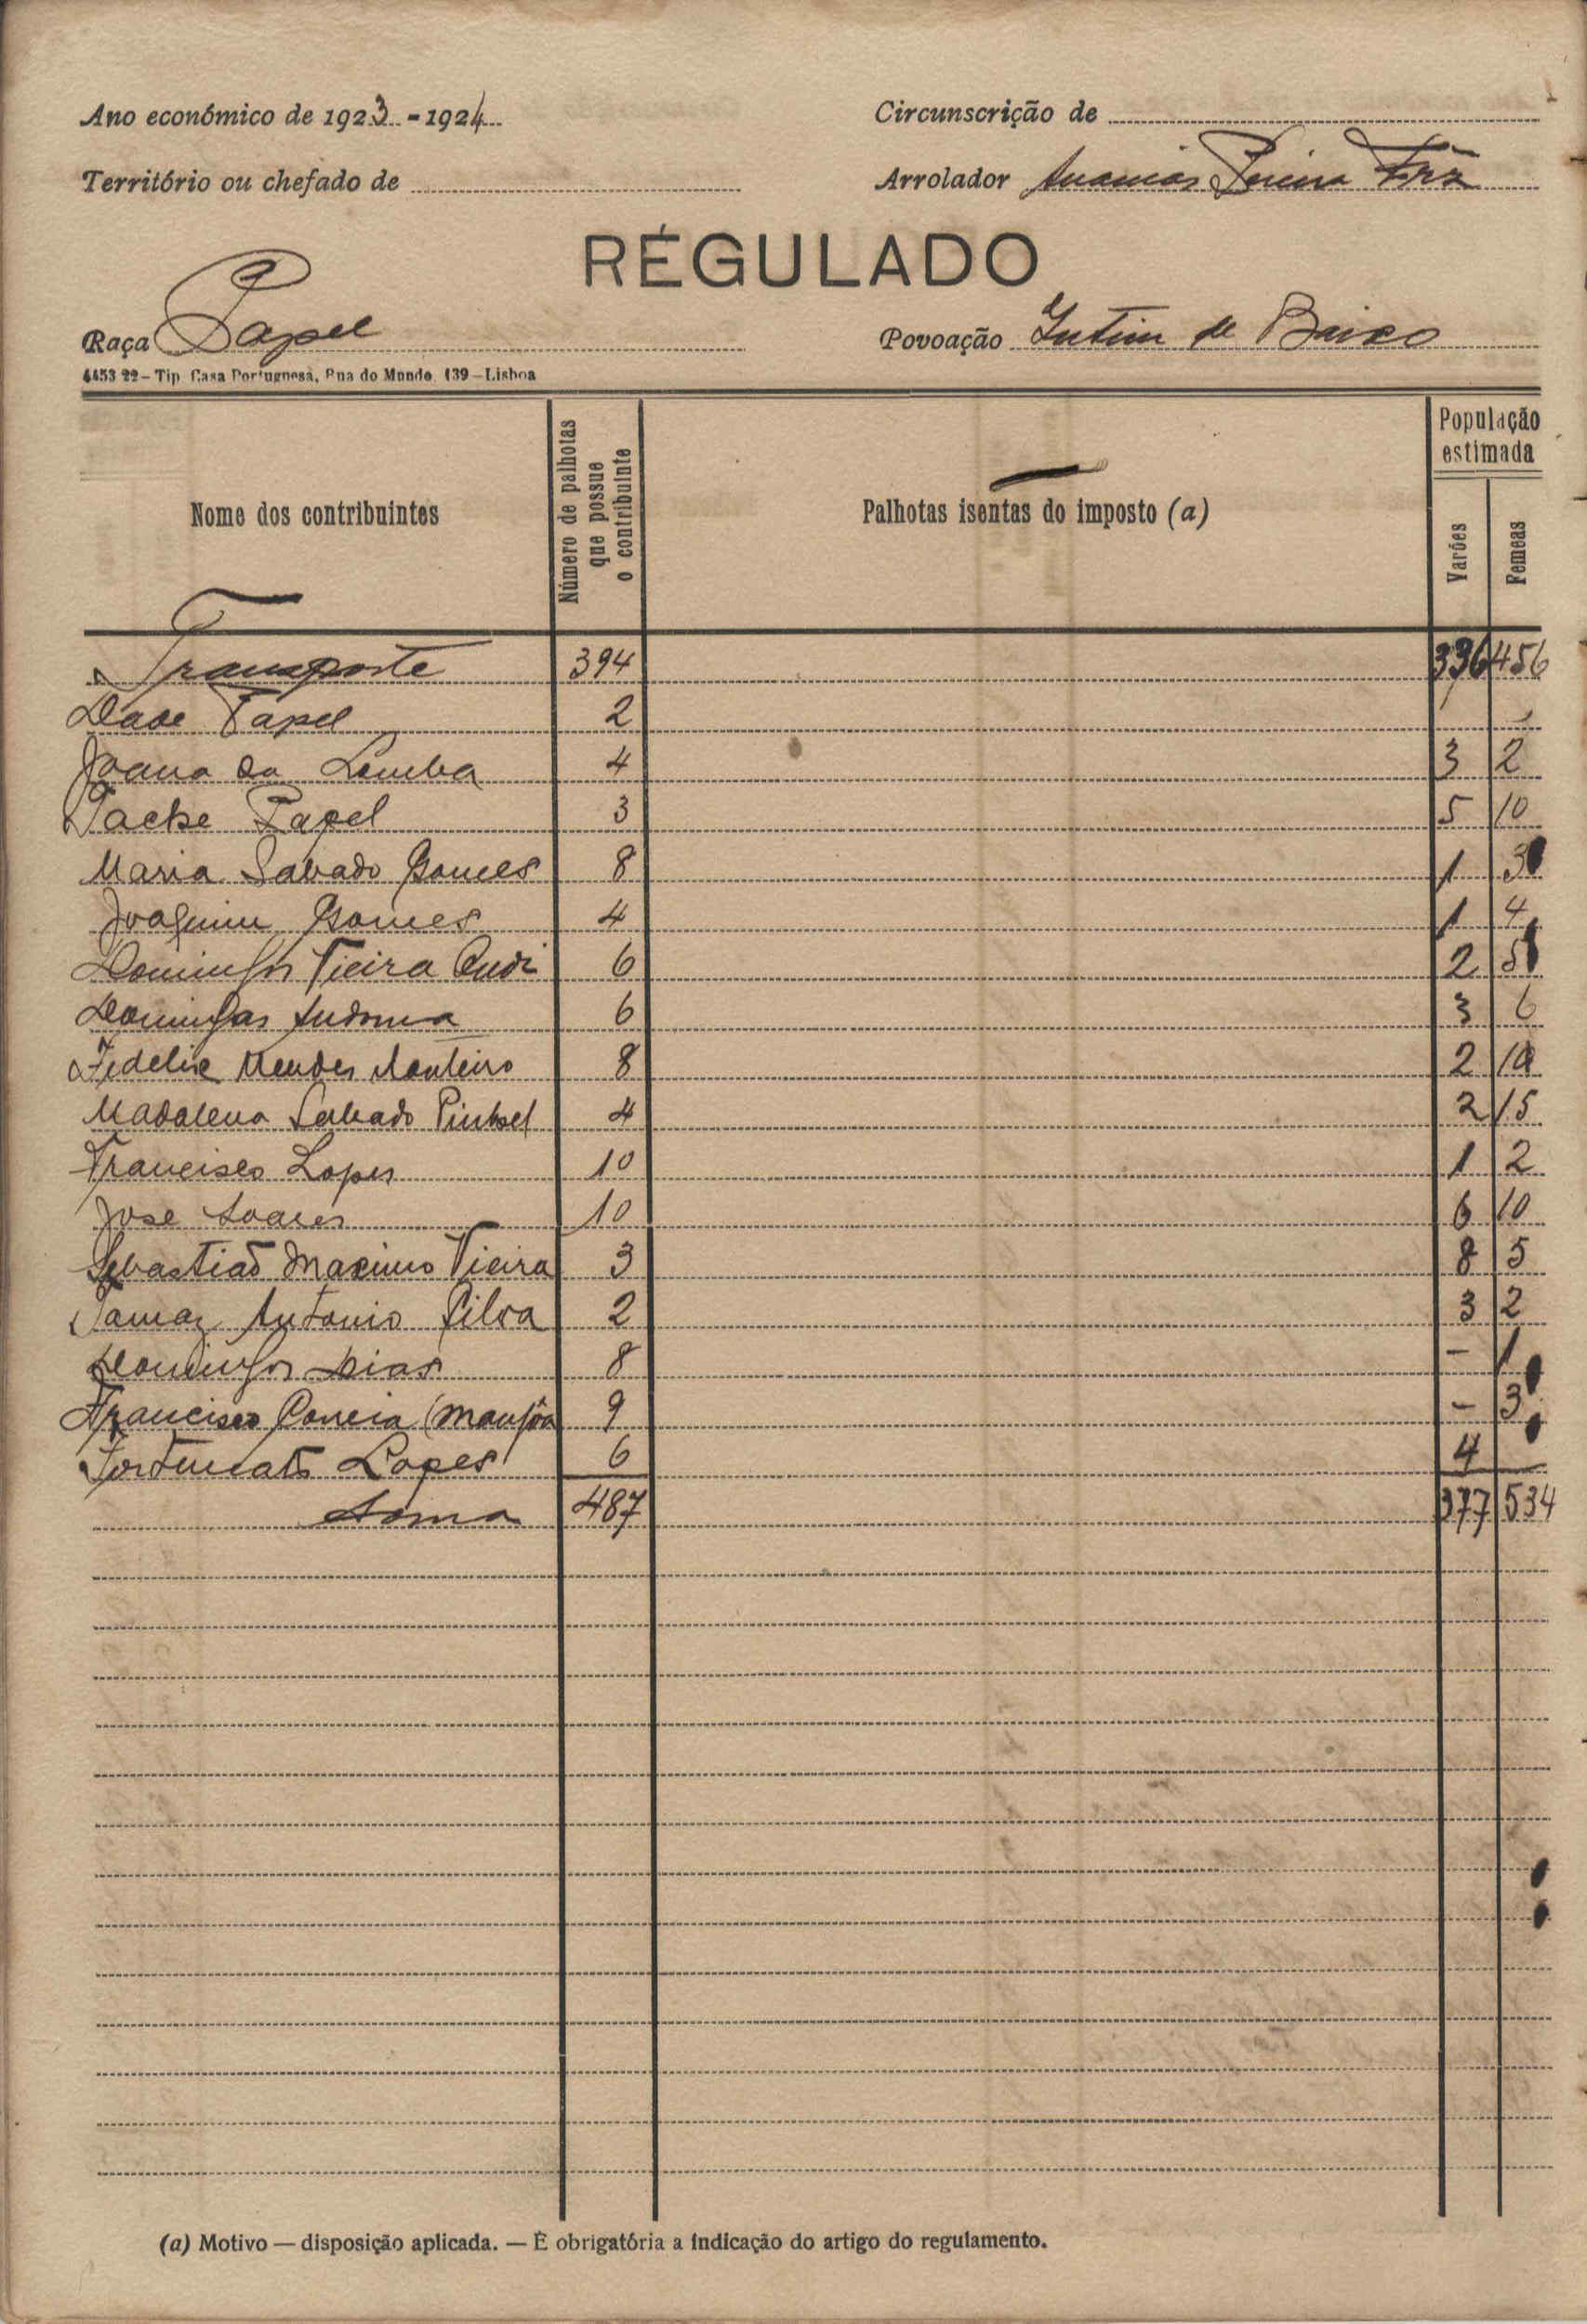 Ano económico de 1923 - 1924 Circunscrição de
Território ou chefado de Arrolador Ananias Pereira
RÉGULADO
Raça Papel Povoação Intim de Baixo
4453 22 – Tip. Casa Portuguesa, Rua do Mundo, 139 – Lisboa
Nome dos contribuintes
Número de palhotas que possue o contribuinte
Palhotas isentas do imposto (a)
População estimada
Varões
Femeas
Transporte 394 336 456
Dade Papel 2
Joana da Lomba 4 3 2
Tacke Papel 3 5 10
Maria Sabado Gomes 8 1 3
Joaquim Gomes 4 1 4
Domingos Vieira 6 2 5
Domingas 6 3 6
Fidelis Mendes Monteiro 8 2 10
Madalena Sabado 4 2 15
Francisco Lopes 10 1 2
José Soares 10 6 10
Sebastiaõ Maximo Vieira 3 8 5
Tamaz Antonio Silva 2 3 2
Domingos Dias 8 – 1
Francisco Correia (Mansôa 9 – 3
Fortunato Lopes 6 4
Soma 487 377 534
(a) Motivo — disposição aplicada. — É obrigatória a indicação do artigo do regulamento.